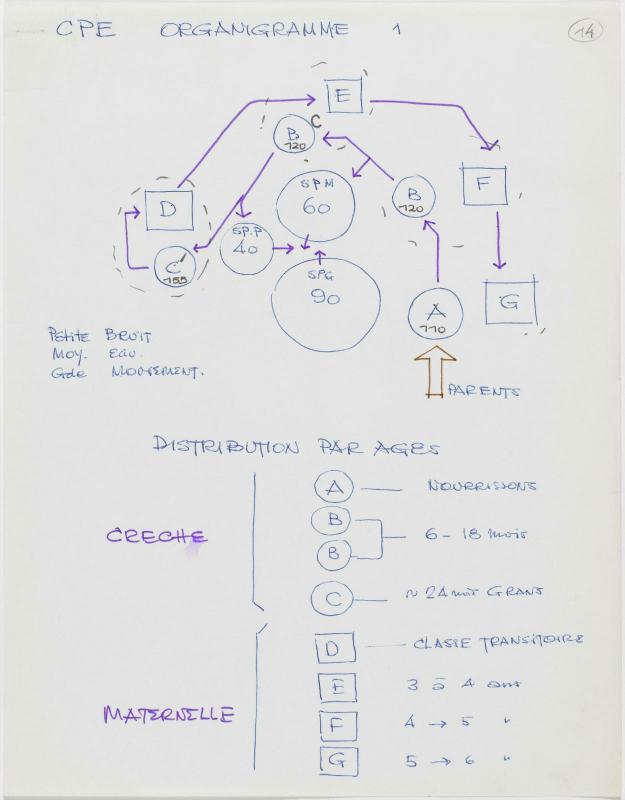 CPE ORGANIGRAMME 1
14
E
B
120
C
SPM
60
B
120
F
D
SP.P
40
C
155
SPG
90
A
110
G
Petite BRUIT
MOY. EAU.
Gde MOUVEMENT.
PARENTS
DISTRIBUTION PAR AGES
CRECHE
A NOURRISSONS
B
6 - 18 mois
B
C ~ 24 mois GRANS
D CLASSE TRANSITOIRE
E 3 à 4 ans
MATERNELLE
F 4 → 5 "
G 5 → 6 "